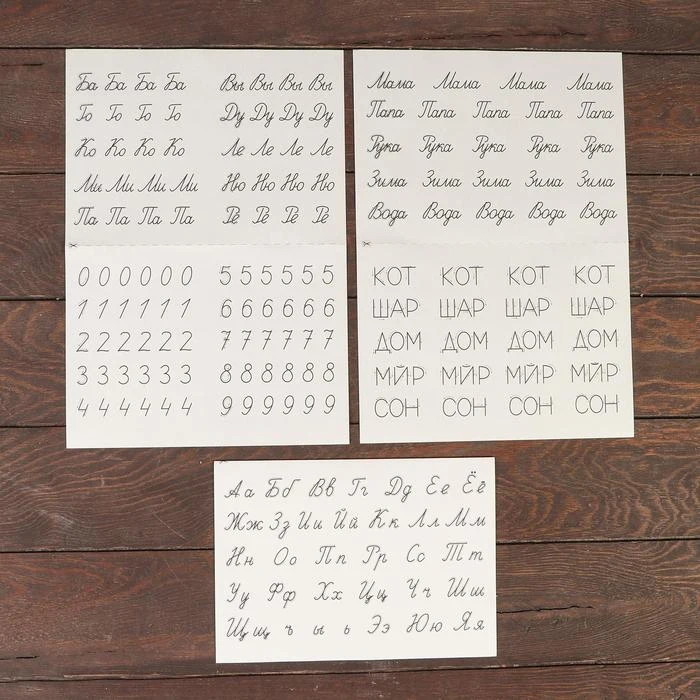 Ба Ба Ба Ба
Го Го Го Го
Ко Ко Ко Ко
Ми Ми Ми Ми
Па Па Па Па
Вы Вы Вы Вы
Ду Ду Ду Ду
Ле Ле Ле Ле
Ню Ню Ню Ню
Рё Рё Рё Рё
0 0 0 0 0 0
1 1 1 1 1 1
2 2 2 2 2 2
3 3 3 3 3 3
4 4 4 4 4 4
5 5 5 5 5 5
6 6 6 6 6 6
7 7 7 7 7 7
8 8 8 8 8 8
9 9 9 9 9 9
Мама Мама Мама Мама
Папа Папа Папа Папа Папа
Рука Рука Рука Рука Рука
Зима Зима Зима Зима Зима
Вода Вода Вода Вода Вода
КОТ КОТ КОТ КОТ
ШАР ШАР ШАР ШАР
ДОМ ДОМ ДОМ ДОМ
МЙР МЙР МЙР МЙР
СОН СОН СОН СОН
Аа Бб Вв Гг Дд Ее Ёё
Жж Зз Ии Йй Кк Лл Мм
Нн Оо Пп Рр Сс Тт
Уу Фф Хх Цц Чч Шш
Щщ ъ ы ь Ээ Юю Яя